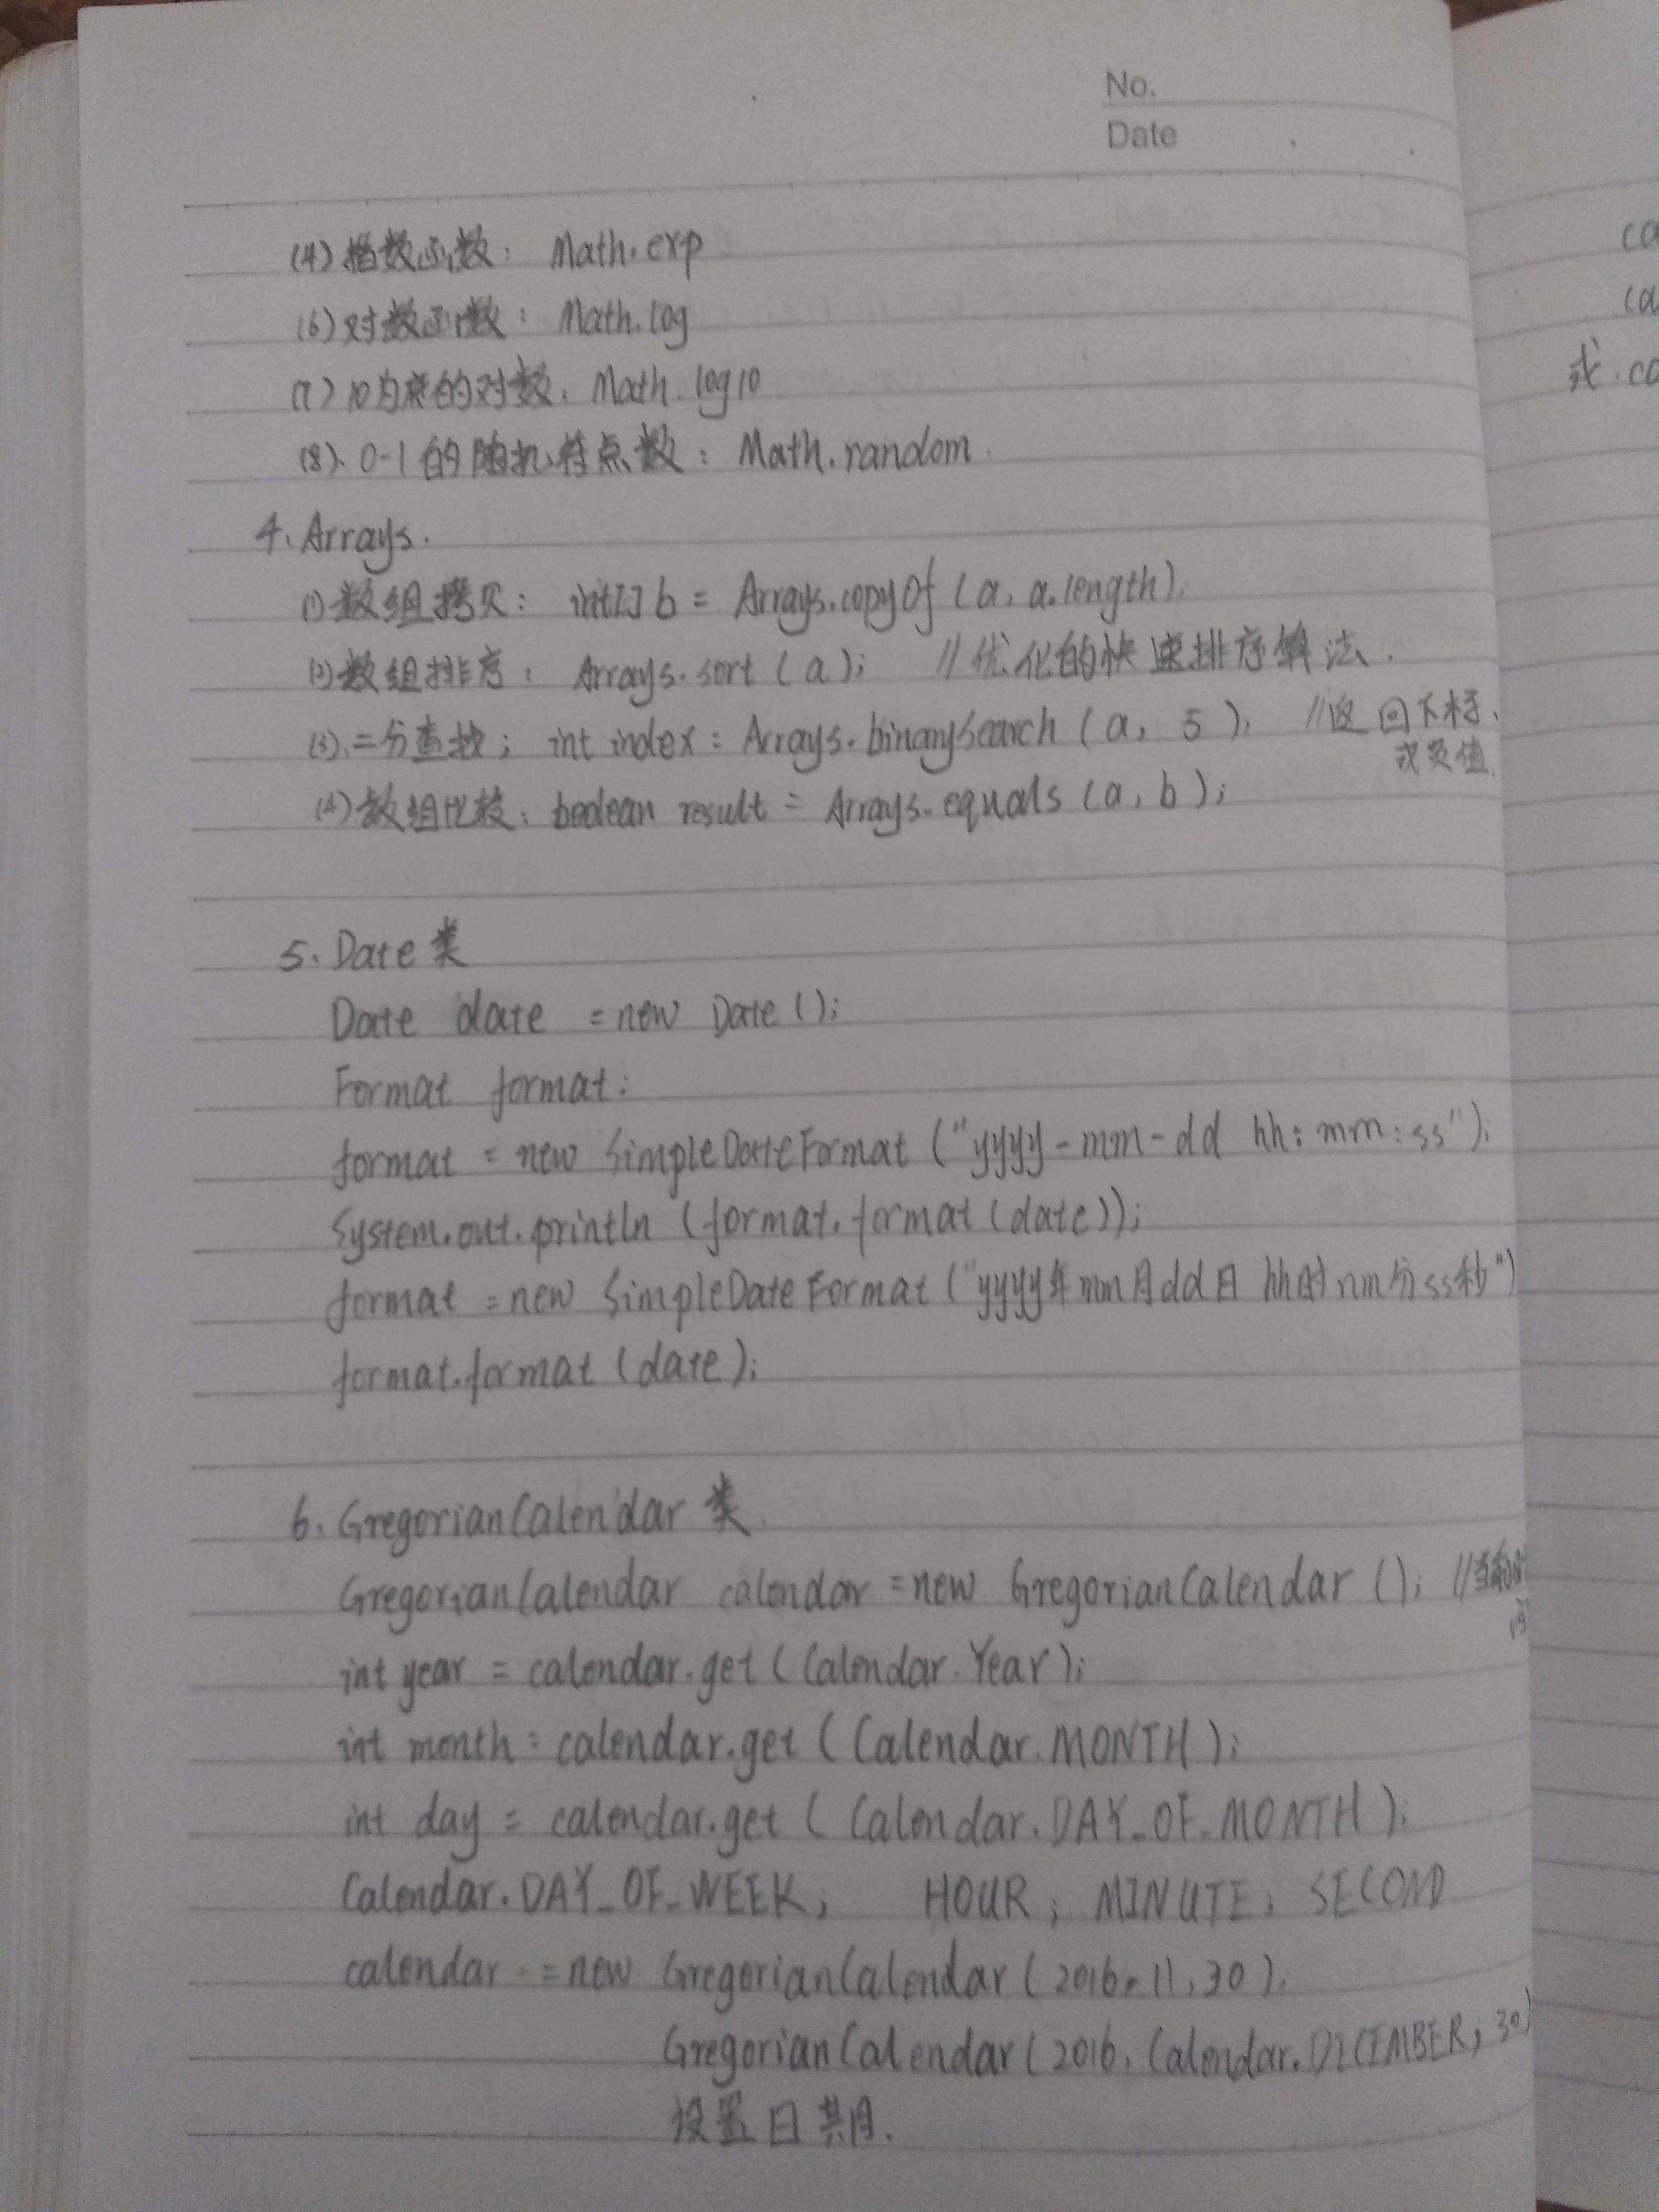 No.
Date
(4) 指数函数： Math.exp
(6) 对数函数： Math.log
(7) 10为底的对数. Math.log10
(8). 0-1的随机符点数： Math.random.
4. Arrays.
(1) 数组拷贝： int[] b = Arrays.copyOf (a, a.length);
(2) 数组排序： Arrays.sort (a); //优化的快速排序算法.
(3). 二分查找; int index = Arrays.binarySearch (a, 5); //返回下标、
或负值.
(4) 数组比较： boolean result = Arrays.equals (a, b);
5. Date类
Date date = new Date ();
Format format;
format = new SimpleDateFormat ("yyyy-mm-dd hh:mm:ss");
System.out.println (format.format (date));
format = new SimpleDateFormat ("yyyy年mm月dd日 hh时mm分ss秒")
format.format (date);
6. GregorianCalendar 类.
GregorianCalendar calendar = new GregorianCalendar (); //当前时
间
int year = calendar.get (Calendar.Year);
int month = calendar.get (Calendar.MONTH);
int day = calendar.get (Calendar.DAY_OF_MONTH);
Calendar.DAY_OF_WEEK; HOUR; MINUTE; SECOND
calendar = new GregorianCalendar (2016, 11, 30);
GregorianCalendar (2016, Calendar.DECEMBER, 30)
设置日期.
ca
ca
或. ca